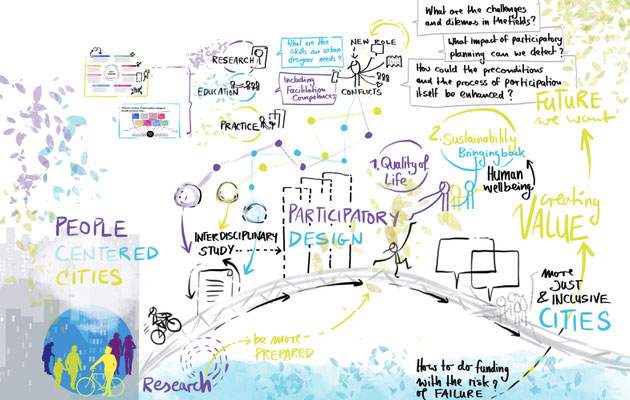 What are the challenges
and dilemas in the fields?
What impact of participatory
planning can we detect?
How could the preconditions
and the process of participation
itself be enhanced?
RESEARCH
What are the
skills an urban
designer needs?
NEW ROLE
EDUCATION
Including
Facilitation
Competences
CONFLICTS
PRACTICE
FUTURE
we want
1. Quality of
Life
2. Sustainability
Bringing back
Human
wellbeing
creating
VALUE
PEOPLE
CENTERED
CITIES
INTERDISCIPLINARY
STUDY
PARTICIPATORY
DESIGN
more
JUST
& INCLUSIVE
CITIES
be more
PREPARED
Research
How to do funding
with the risk?
of FAILURE